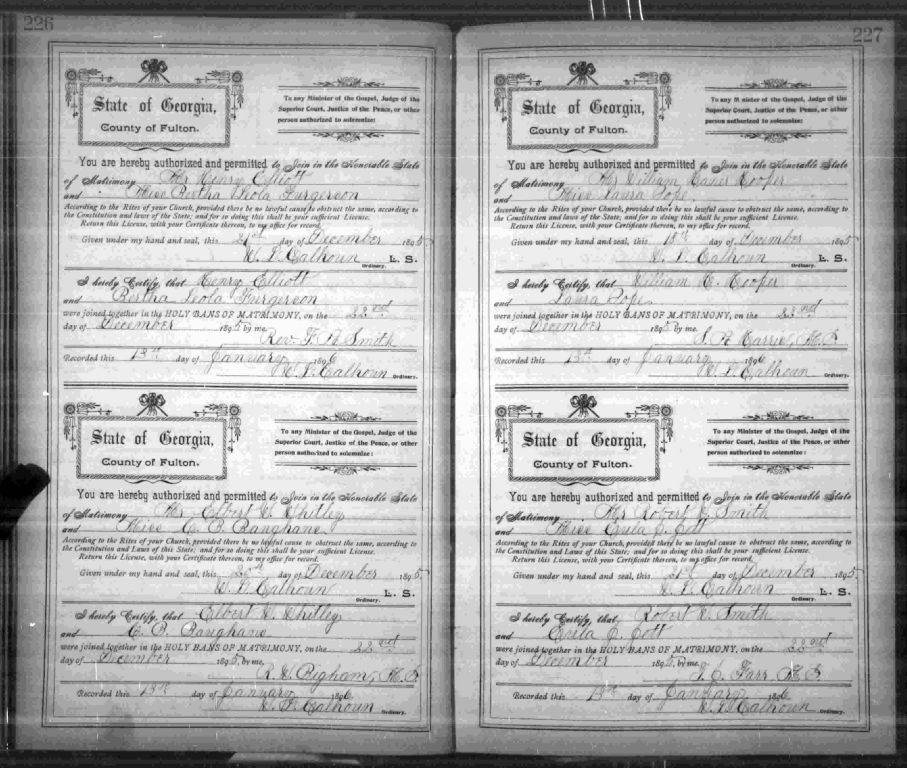 226
State of Georgia,
County of Fulton.
To any Minister of the Gospel, Judge of the
Superior Court, Justice of the Peace, or other
person authorized to solemnize:
You are hereby authorized and permitted to Join in the Honorable State
of Matrimony Mr Henry Elliott
and Miss Bertha Leola Furgerson
According to the Rites of your Church, provided there be no lawful cause to obstruct the same, according to the
Constitution and laws of the State; and for so doing this shall be your sufficient License.
Return this License, with your Certificate thereon, to my office for record.
Given under my hand and seal, this 21st day of December 1895
W. L. Calhoun L. S.
Ordinary.
I hereby Certify, that Henry Elliott
and Bertha Leola Furgerson
were joined together in the HOLY BANS OF MATRIMONY, on the 22nd
day of December 1895 by me,
Rev. F. R. Smith
Recorded this 13th day of January 1896
W. L. Calhoun Ordinary.
State of Georgia,
County of Fulton.
To any Minister of the Gospel, Judge of the
Superior Court, Justice of the Peace, or other
person authorized to solemnize:
You are hereby authorized and permitted to Join in the Honorable State
of Matrimony Mr Elbert
and Miss C. B.
According to the Rites of your Church, provided there be no lawful cause to obstruct the same, according to
the Constitution and Laws of this State; and for so doing this shall be your sufficient License.
Return this License, with your Certificate thereon, to my office for record.
Given under my hand and seal, this day of December 1895
W. L. Calhoun L. S.
Ordinary.
I hereby Certify, that Elbert
and C. B.
were joined together in the HOLY BANS OF MATRIMONY, on the 22nd
day of December 1895, by me,
Bigham,
Recorded this 13th day of January 1896
W. L. Calhoun Ordinary.
227
State of Georgia,
County of Fulton.
To any Minister of the Gospel, Judge of the
Superior Court, Justice of the Peace, or other
person authorized to solemnize:
You are hereby authorized and permitted to Join in the Honorable State
of Matrimony Mr William Cooper
and Miss Laura Pope
According to the Rites of your Church, provided there be no lawful cause to obstruct the same, according to
the Constitution and laws of the State; and for so doing this shall be your sufficient License.
Return this License, with your Certificate thereon, to my office for record.
Given under my hand and seal, this 18th day of December 1895
W. L. Calhoun L. S.
Ordinary.
I hereby Certify, that William Cooper
and Laura Pope
were joined together in the HOLY BANS OF MATRIMONY, on the 23rd
day of December 1895 by me,
Recorded this 13th day of January 1896
W. L. Calhoun Ordinary.
State of Georgia,
County of Fulton.
To any Minister of the Gospel, Judge of the
Superior Court, Justice of the Peace, or other
person authorized to solemnize:
You are hereby authorized and permitted to Join in the Honorable State
of Matrimony Mr Robert Smith
and Miss Cott
According to the Rites of your Church, provided there be no lawful cause to obstruct the same, according to
the Constitution and Laws of this State; and for so doing this shall be your sufficient License.
Return this License, with your Certificate thereon, to my office for record.
Given under my hand and seal, this 21st day of December 1895.
W. L. Calhoun L. S.
Ordinary.
I hereby Certify, that Robert Smith
and Cott
were joined together in the HOLY BANS OF MATRIMONY, on the 22nd
day of December 1895, by me,
Farr
Recorded this 13th day of January 1896
W. L. Calhoun Ordinary.